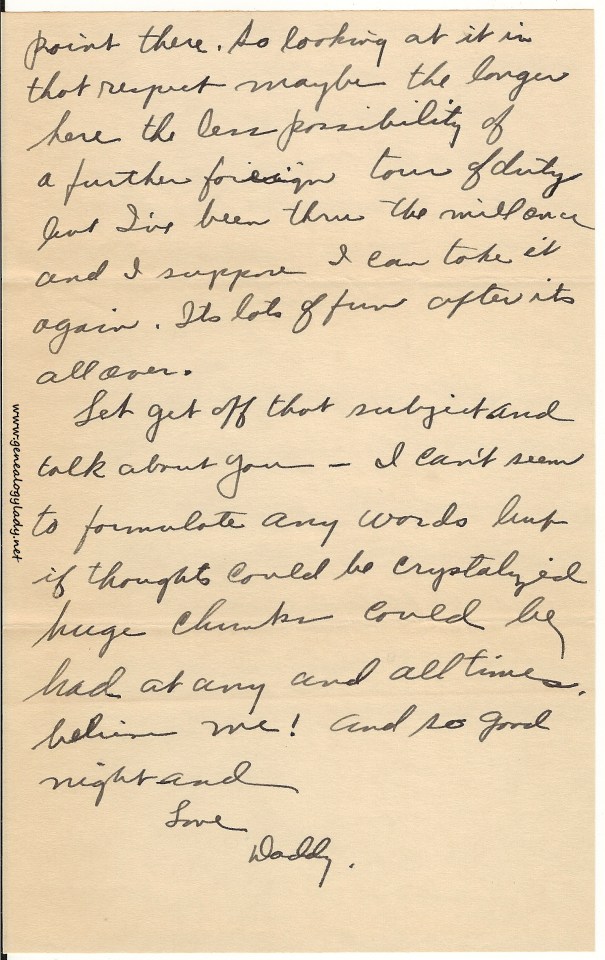 point there. So looking at it in
that respect maybe the longer
here the less possibility of
a further foreign tour of duty
but I've been thru the mill once
and I suppose I can take it
again. Its lots of fun after its
all over.
Let get off that subject and
talk about you — I can't seem
to formulate any words but
if thoughts could be crystalyzed
huge chunks could be
had at any and all times,
believe me! And so good
night and
Love
Daddy.
www.genealogylady.net